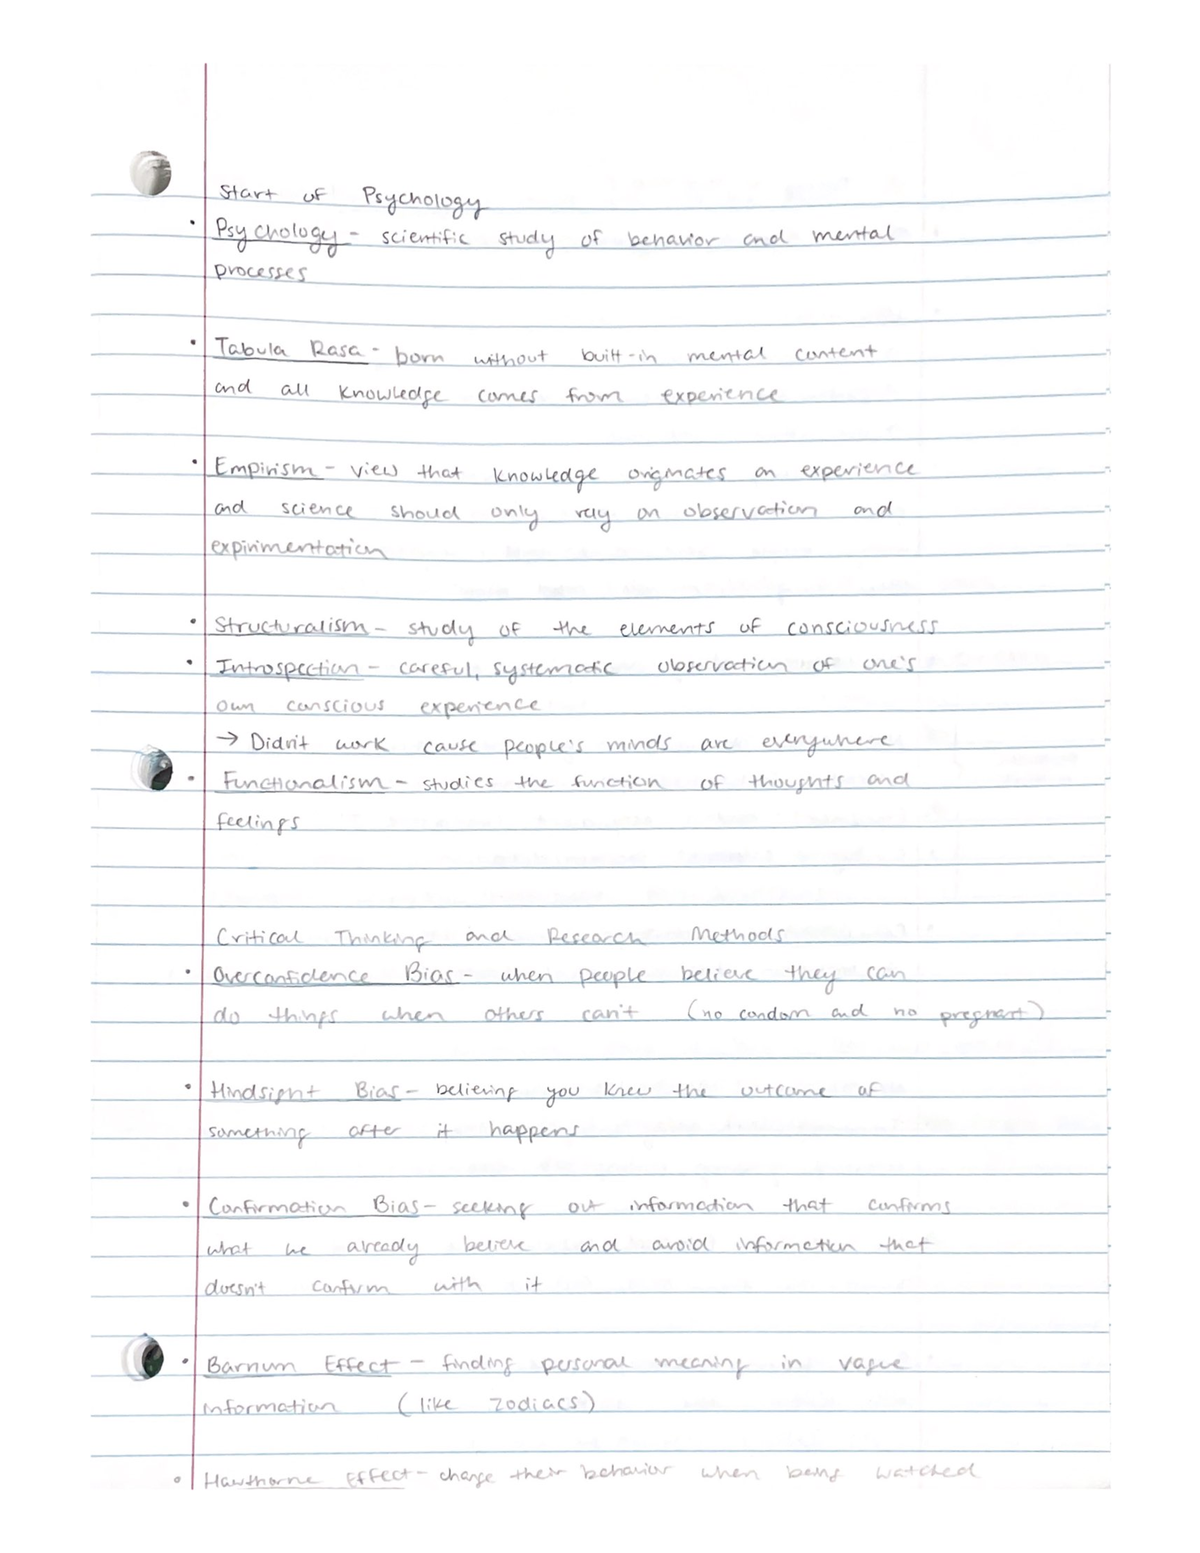 Start of Psychology
• Psychology - scientific study of behavior and mental
processes
• Tabula Rasa - born without built-in mental content
and all knowledge comes from experience
• Empirism - view that knowledge originates on experience
and science should only rely on observation and
expirimentation
• Structuralism - study of the elements of consciousness
• Introspection - careful, systematic observation of one's
own conscious experience
→ Didn't work cause people's minds are everywhere
• Functionalism - studies the function of thoughts and
feelings
Critical Thinking and Research Methods
• Overconfidence Bias - when people believe they can
do things when others can't (no condom and no pregnant)
• Hindsight Bias - believing you knew the outcome of
something after it happens
• Confirmation Bias - seeking out information that confirms
what we already believe and avoid information that
doesn't confirm with it
• Barnum Effect - finding personal meaning in vague
information (like zodiacs)
• Hawthorne Effect - change their behavior when being watched